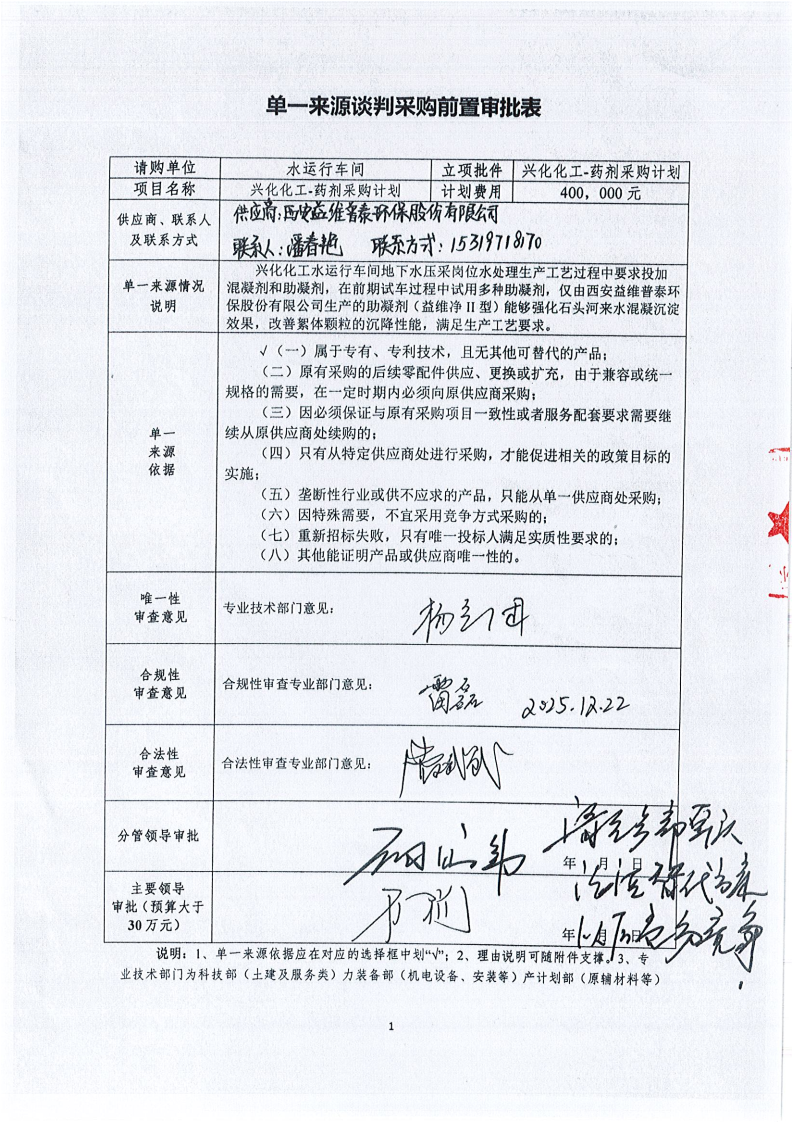 单一来源谈判采购前置审批表
请购单位 水运行车间 立项批件 兴化化工-药剂采购计划
项目名称 兴化化工-药剂采购计划 计划费用 400，000 元
供应商、联系人
及联系方式
供应商：西安益维普泰环保股份有限公司
联系人：潘春艳 联系方式：15319718170
单一来源情况
说明
兴化化工水运行车间地下水压采岗位水处理生产工艺过程中要求投加
混凝剂和助凝剂，在前期试车过程中试用多种助凝剂，仅由西安益维普泰环
保股份有限公司生产的助凝剂（益维净 II 型）能够强化石头河来水混凝沉淀
效果，改善絮体颗粒的沉降性能，满足生产工艺要求。
单一
来源
依据
√（一）属于专有、专利技术，且无其他可替代的产品；
（二）原有采购的后续零配件供应、更换或扩充，由于兼容或统一
规格的需要，在一定时期内必须向原供应商采购；
（三）因必须保证与原有采购项目一致性或者服务配套要求需要继
续从原供应商处续购的；
（四）只有从特定供应商处进行采购，才能促进相关的政策目标的
实施；
（五）垄断性行业或供不应求的产品，只能从单一供应商处采购；
（六）因特殊需要，不宜采用竞争方式采购的；
（七）重新招标失败，只有唯一投标人满足实质性要求的；
（八）其他能证明产品或供应商唯一性的。
唯一性
审查意见
专业技术部门意见：
合规性
审查意见
合规性审查专业部门意见： 雷磊 2025.12.22
合法性
审查意见
合法性审查专业部门意见：
分管领导审批
年 月 日
主要领导
审批（预算大于
30 万元）
年 月 日
说明：1、单一来源依据应在对应的选择框中划“√”；2、理由说明可随附件支撑。3、专
业技术部门为科技部（土建及服务类）力装备部（机电设备、安装等）产计划部（原辅材料等）
1